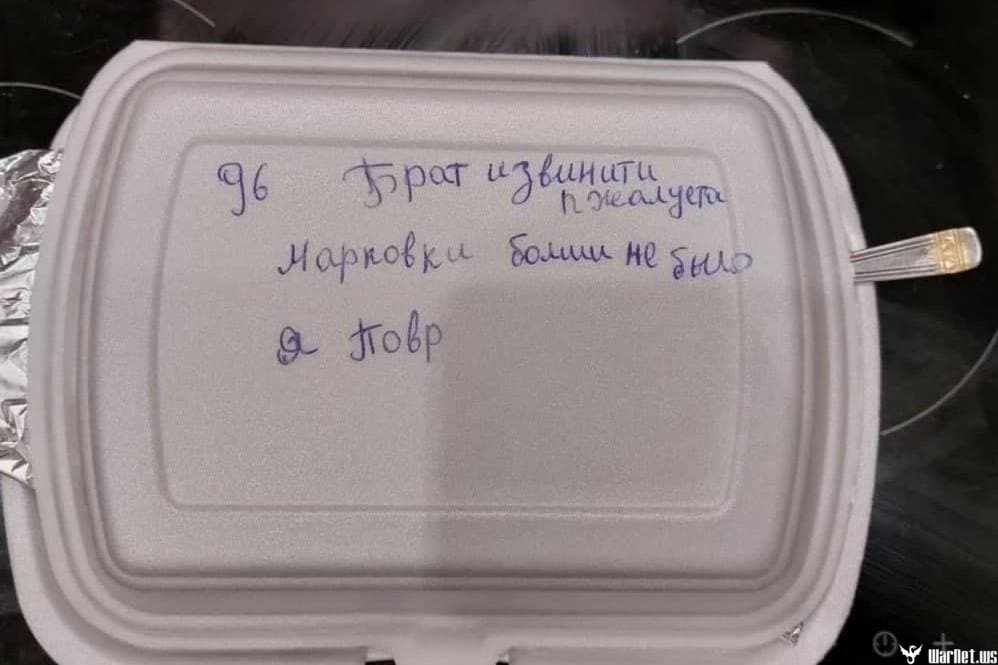 96 Брат извинити
пжалуста
марковки болши не было
я Повр
WarNet.ws